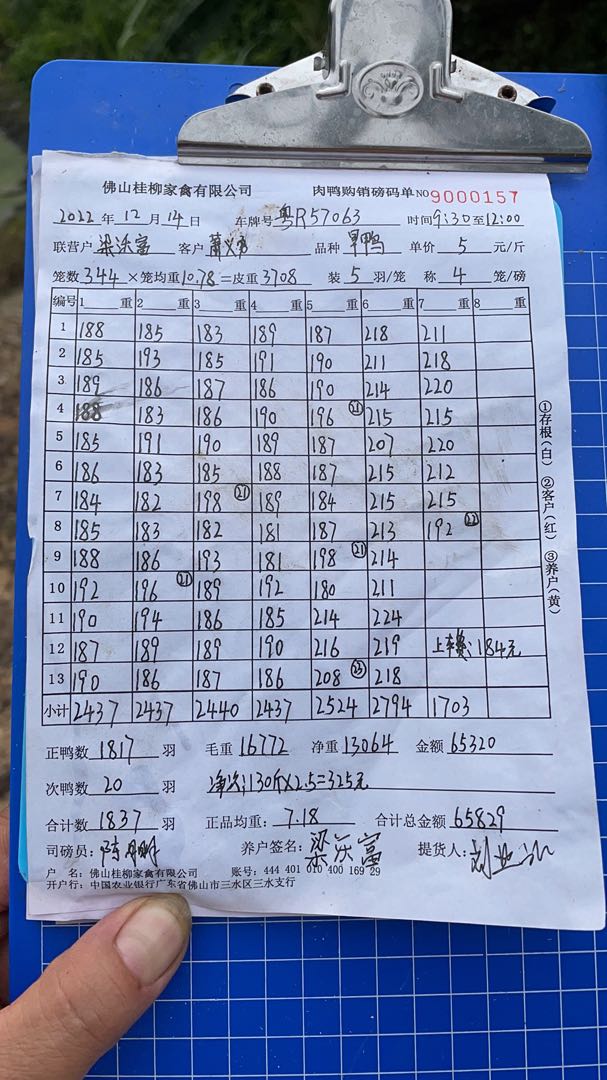 佛山桂柳家禽有限公司 肉鸭购销磅码单 NO 9000157
2022 年 12 月 14 日 车牌号 粤R57063 时间 9:30 至 12:00
联营户 梁沃富 客户 品种 旱鸭 单价 5 元/斤
笼数 344 ×笼均重 10.78 =皮重 3708 装 5 羽/笼 称 4 笼/磅
编号 1 重 2 重 3 重 4 重 5 重 6 重 7 重 8 重
1 188 185 183 189 187 218 211
2 185 193 185 191 190 211 218
3 189 186 187 186 190 214 220
4 188 183 186 190 196 ㉑ 215 215
5 185 191 190 189 187 207 220
6 186 183 185 188 187 215 212
7 184 182 198 ㉑ 189 184 215 215
8 185 183 182 181 187 213 192 ㉒
9 188 186 193 181 198 ㉑ 214
10 192 196 ㉑ 189 192 180 211
11 190 194 186 185 214 224
12 187 189 189 190 216 219 上车费:184元
13 190 186 187 186 208 218
小计 2437 2437 2440 2437 2524 2794 1703
①存根(白) ②客户(红) ③养户(黄)
正鸭数 1817 羽 毛重 16772 净重 13064 金额 65320
次鸭数 20 羽 净次:130斤×2.5=325元
合计数 1837 羽 正品均重: 7.18 合计总金额 65829
司磅员: 养户签名: 梁沃富 提货人:
户 名: 佛山桂柳家禽有限公司 账号: 444 401 010 400 169 29
开户行: 中国农业银行广东省佛山市三水区三水支行